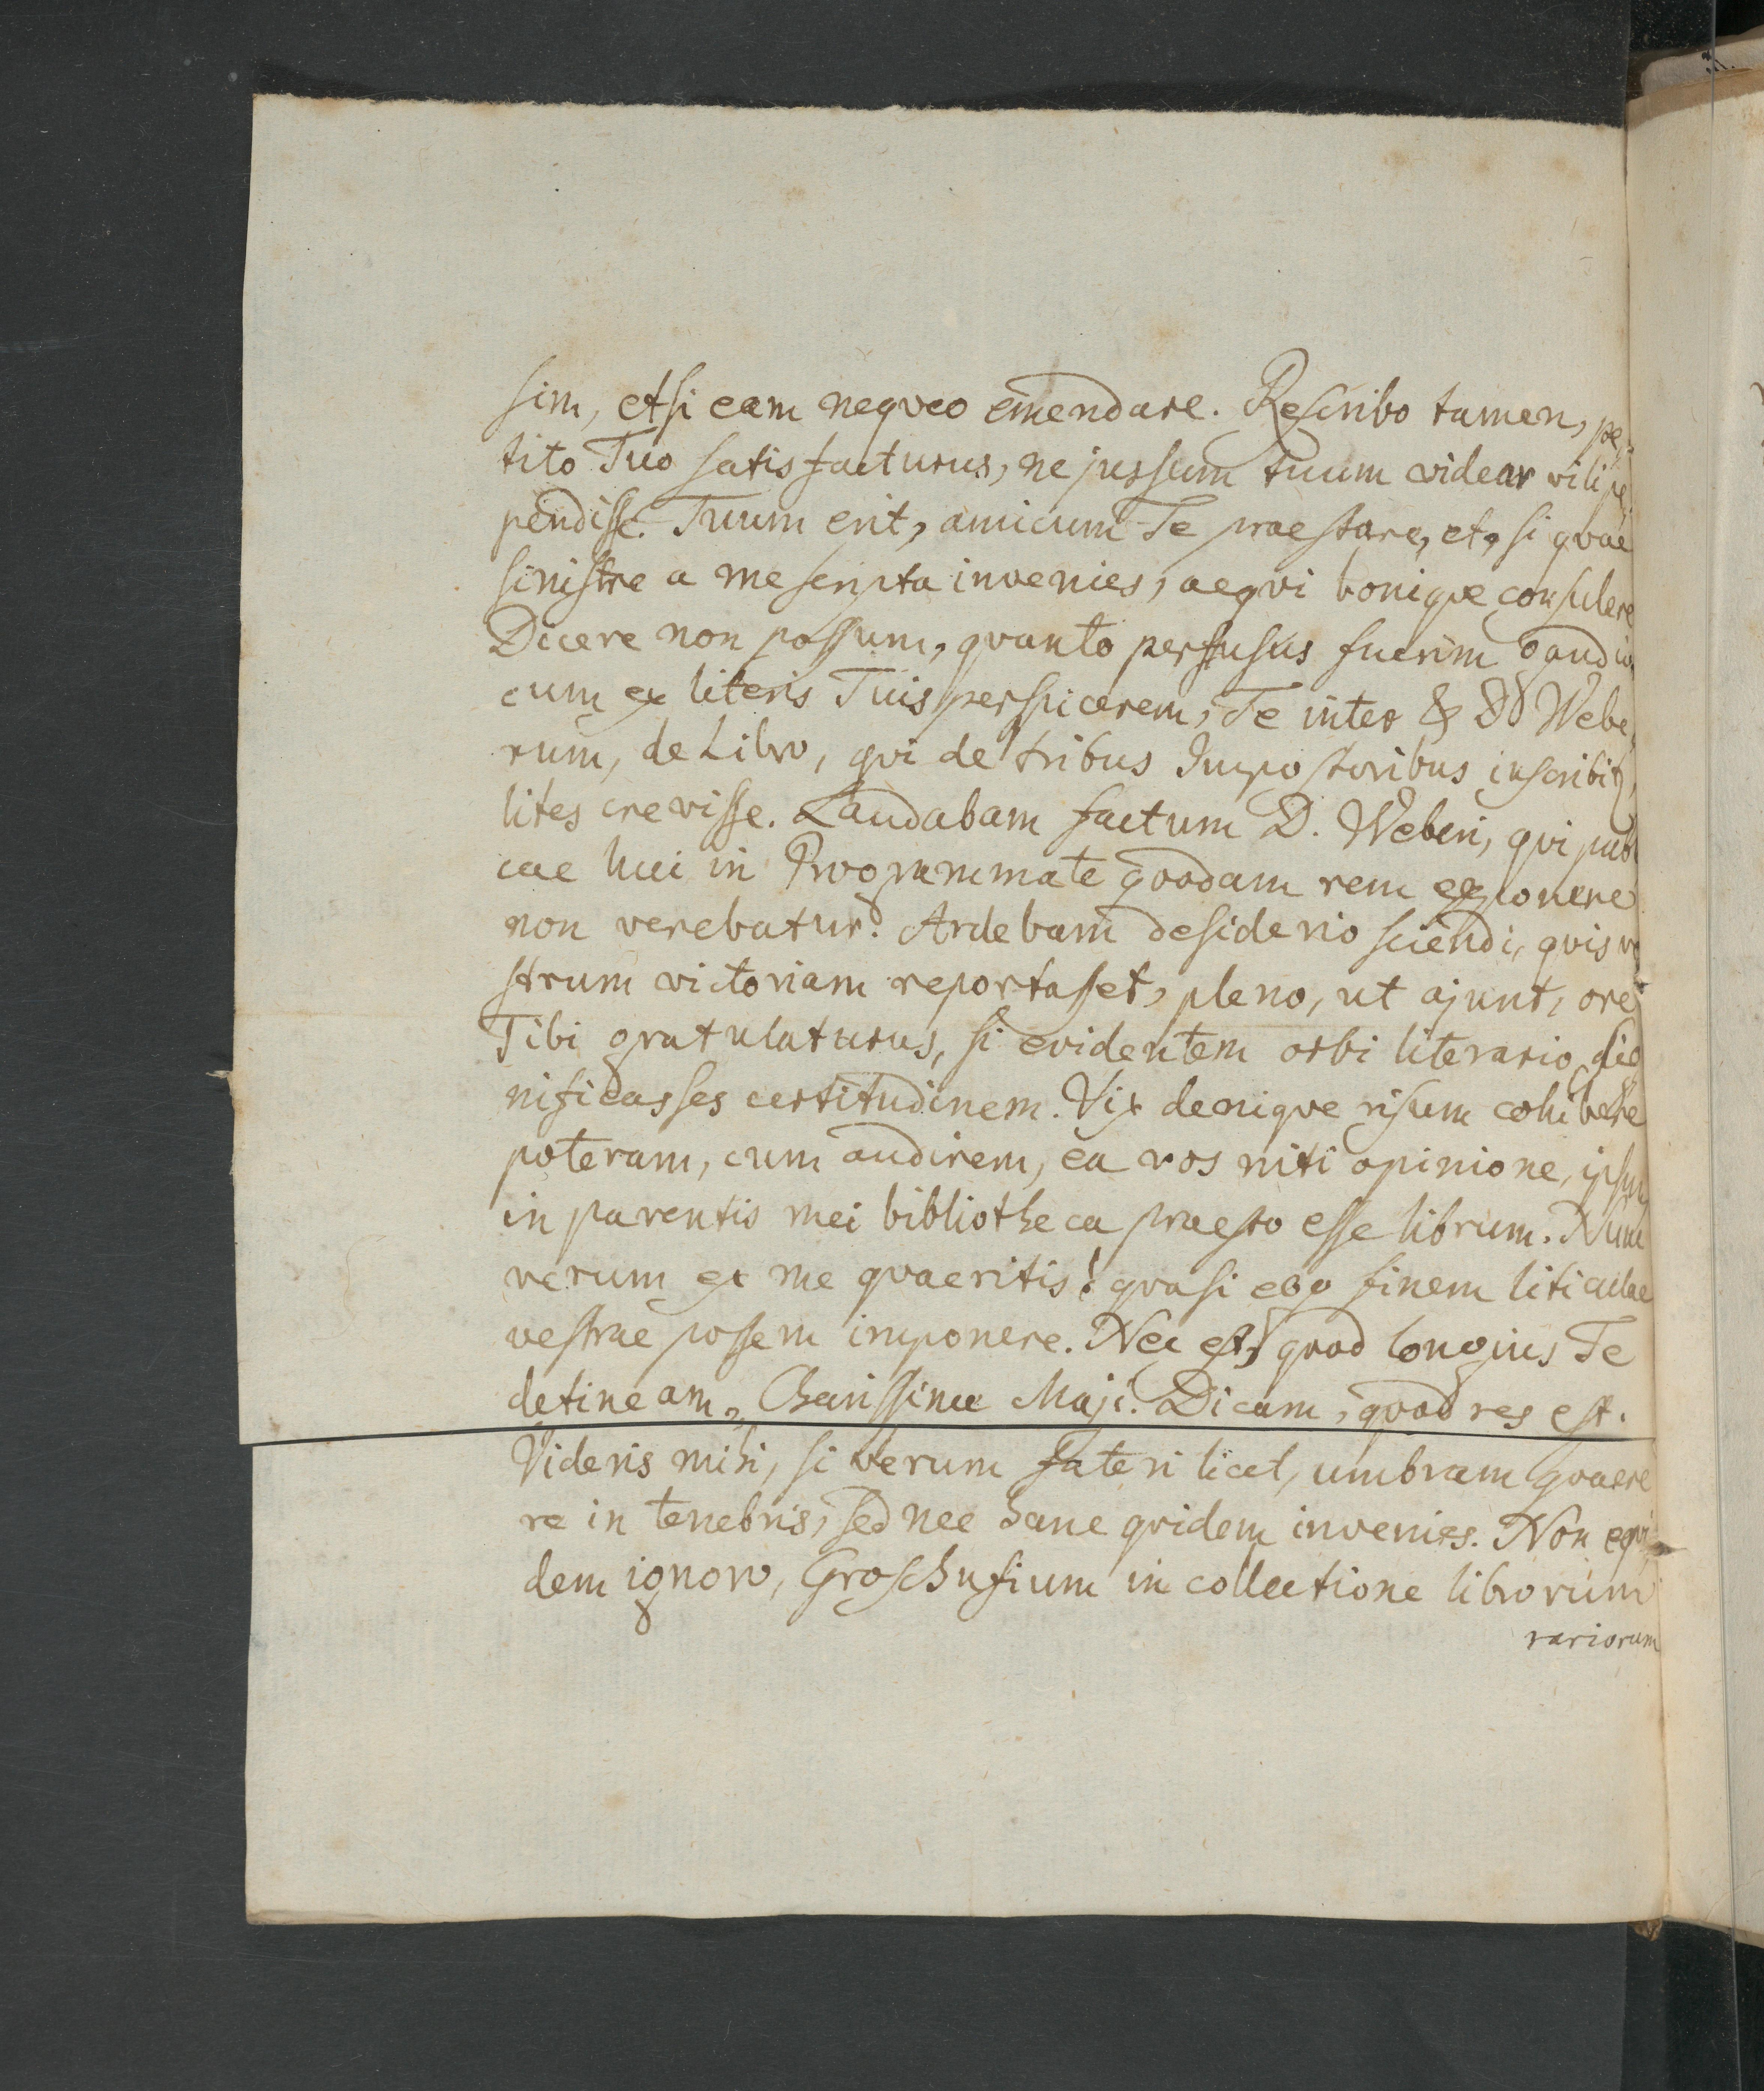 sim, etsi eam neqveo emendare. Rescribo tamen, pe-
tito Tuo satisfacturus, ne jussum tuum videar vilipe
pendisse. Tuum erit, amicum Te praestare, et, si qvae
sinistre a me scripta invenies, aeqvi boniqve consulere
Dicere non possum, qvanto perfusus fuerim gaudio
cum ex literis Tuis perspicerem, Te inter & D Webe
rum, de Libro, qvi de tribus Impostoribus inscribit,
lites crevisse. Laudabam factum D. Weberi, qvi publ
cae luci in Programmate qvodam rem exponere
non verebatur. Ardebam desiderio sciendi, qvis ve
strum victoriam reportasset, pleno, ut ajunt, ore
Tibi gratulaturus, si evidentem orbi literario sig
nificasses certitudinem. Vix deniqve risum cohibere
poteram, cum audirem, ea vos niti opinione, ipsum
in parentis mei bibliotheca praesto esse librum. Num
verum ex me qvaeritis! qvasi ego finem liticulae
vestrae possem imponere. Nec est, qvod longius Te
detineam, Charissime Maji. Dicam, qvod res est.
Videris mihi, si verum fateri licet, umbram qvaere
re in tenebris, sed nec hanc qvidem invenies. Non eqvi
dem ignoro, Groschufium in collectione librorum
rariorum